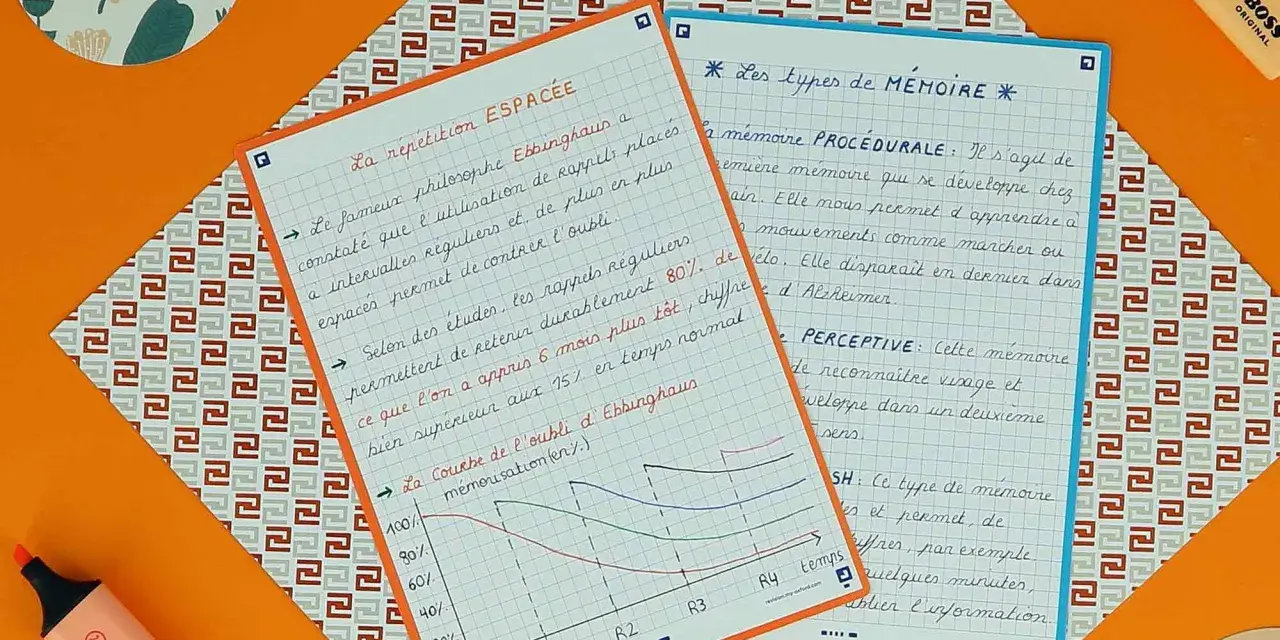 La répétition ESPACÉE
→ Le fameux philosophe Ebbinghaus a
constaté que l'utilisation de rappels placés
à intervalles réguliers et de plus en plus
espacés permet de contrer l'oubli.
→ Selon des études, les rappels réguliers
permettent de retenir durablement 80% de
ce que l'on a appris 6 mois plus tôt, chiffre
bien supérieur aux 15% en temps normal
→ La Courbe de l'oubli d'Ebbinghaus
mémorisation (en %)
100%
80%
60%
40%
R2
R3
R4
temps
revision.my-oxford.com
* Les types de MÉMOIRE *
La mémoire PROCÉDURALE : Il s'agit de
mémoire qui se développe chez
Elle nous permet d'apprendre à
mouvements comme marcher ou
Elle disparaît en dernier dans
d'Alzheimer
PERCEPTIVE : Cette mémoire
de reconnaître visage et
dans un deuxième
sens.
: Ce type de mémoire
et permet, de
par exemple
quelques minutes,
l'information.
BOSS
ORIGINAL